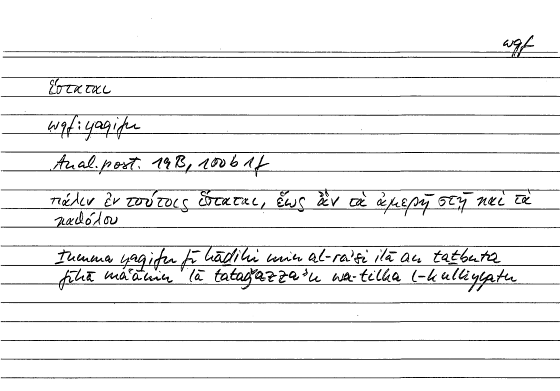 wqf
ἵσταται
wqf: yaqifu
Anal. post. 19 B, 100 b 1 f
πάλιν ἐν τούτοις ἵσταται, ἕως ἂν τὰ ἀμερῆ στῇ καὶ τὰ
καθόλου
ṯumma yaqifu fī hāḏihi min al-raʾsi ilā an taṯbuta
fīhā maʿānin lā tataǧazzaʾu wa-tilka l-kulliyyatu